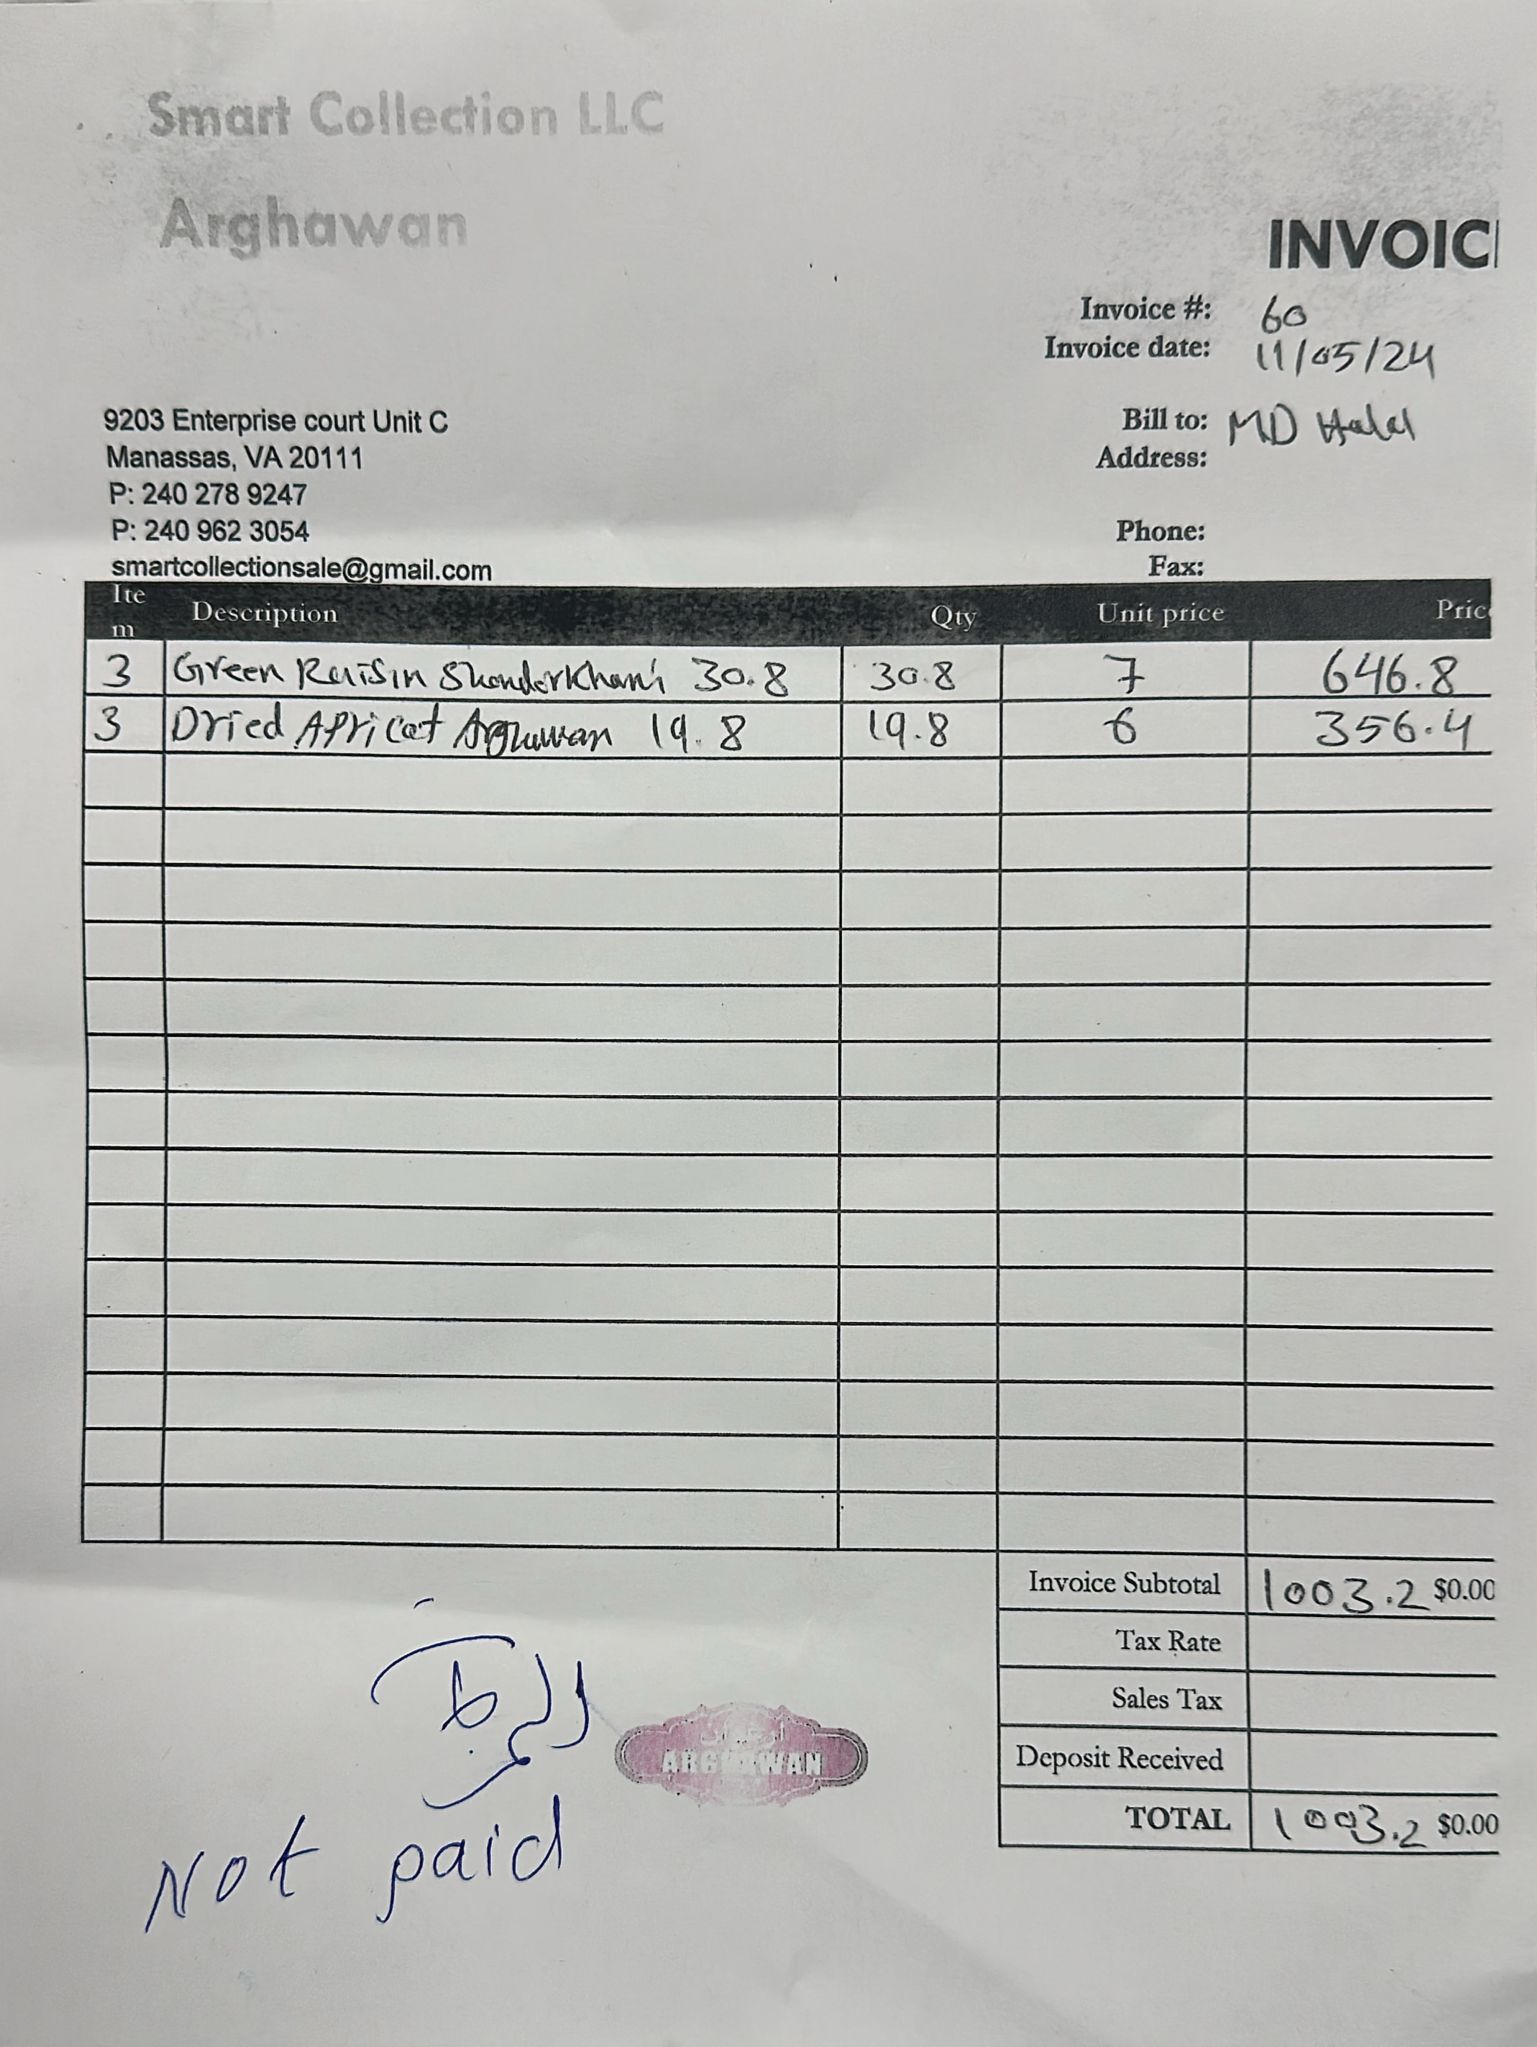 Smart Collection LLC
Arghawan
INVOIC
Invoice #: 60
Invoice date: 11/05/24
9203 Enterprise court Unit C
Manassas, VA 20111
P: 240 278 9247
P: 240 962 3054
smartcollectionsale@gmail.com
Bill to: MD Halal
Address:
Phone:
Fax:
Item Description Qty Unit price Pric
3 Green Raisin Shondorkhani 30.8 30.8 7 646.8
3 Dried Apricot Arghawan 19.8 19.8 6 356.4
Invoice Subtotal 1003.2 $0.00
Tax Rate
Sales Tax
Deposit Received
TOTAL 1003.2 $0.00
ARGHAWAN
Not paid